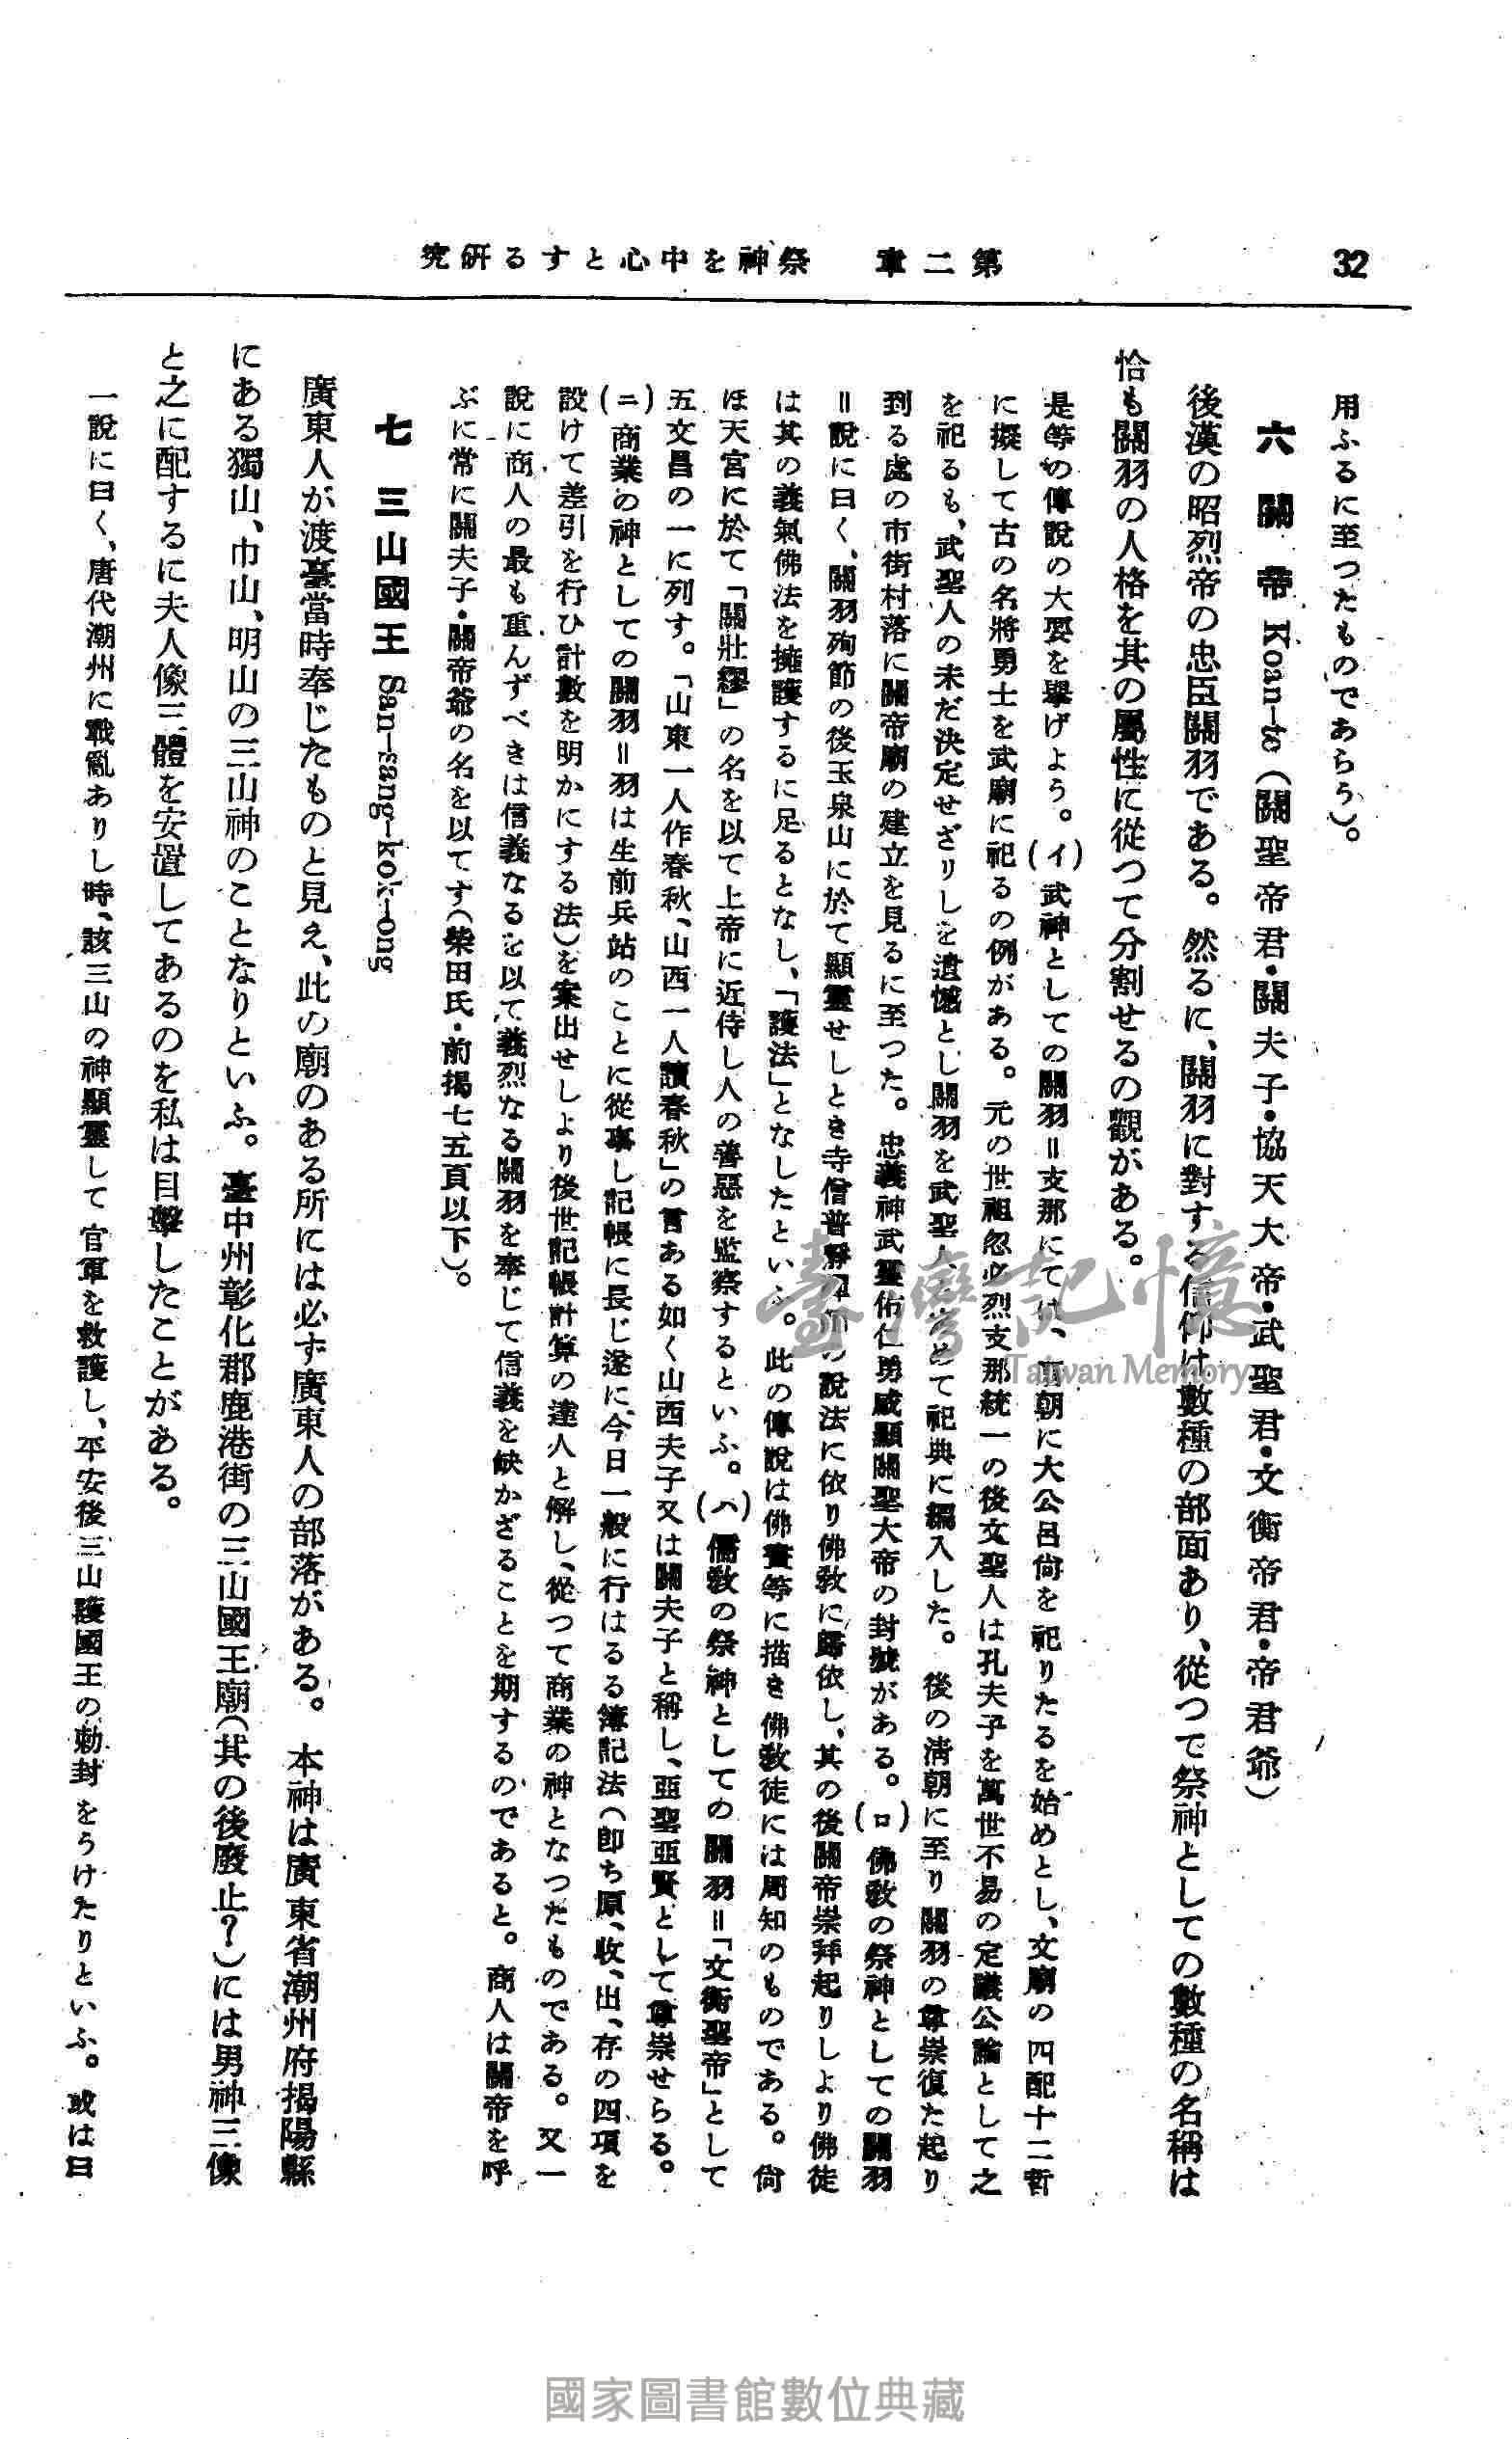 32
第二章 祭神を中心とする研究
用ふるに至つたものであらう)。
六 關帝 Koan-te (關聖帝君・關夫子・協天大帝・武聖君・文衡帝君・帝君爺)
後漢の昭烈帝の忠臣關羽である。然るに、關羽に對する信仰は數種の部面あり、從つて祭神としての數種の名稱は
恰も關羽の人格を其の屬性に從つて分割せるの觀がある。
是等の傳說の大要を擧げよう。(イ)武神としての關羽=支那にては、前朝に大公呂尙を祀りたるを始めとし、文廟の四配十二哲
に擬して古の名將勇士を武廟に祀るの例がある。元の世祖忽必烈支那統一の後文聖人は孔夫子を萬世不易の定議公論として之
を祀るも、武聖人の未だ決定せざりしを遺憾とし關羽を武聖人と定めて祀典に編入した。後の淸朝に至り關羽の尊崇復た起り
到る處の市街村落に關帝廟の建立を見るに至つた。忠義神武靈佑仁勇威顯關聖大帝の封號がある。(ロ)佛敎の祭神としての關羽
=說に曰く、關羽殉節の後玉泉山に於て顯靈せしとき寺僧普靜禪師の說法に依り佛敎に歸依し、其の後關帝崇拜起りしより佛徒
は其の義氣佛法を擁護するに足るとなし、「護法」となしたといふ。此の傳說は佛畫等に描き佛敎徒には周知のものである。尙
ほ天宮に於て「關壯繆」の名を以て上帝に近侍し人の善惡を監察するといふ。(ハ)儒敎の祭神としての關羽=「文衡聖帝」として
五文昌の一に列す。「山東一人作春秋、山西一人讀春秋」の言ある如く山西夫子又は關夫子と稱し、亞聖亞賢として尊崇せらる。
(ニ)商業の神としての關羽=羽は生前兵站のことに從事し記帳に長じ遂に今日一般に行はるる簿記法(卽ち原、收、出、存の四項を
設けて差引を行ひ計數を明かにする法)を案出せしより後世記帳計算の達人と解し、從つて商業の神となつたものである。又一
說に商人の最も重んずべきは信義なるを以て義烈なる關羽を奉じて信義を缺かざることを期するのであると。商人は關帝を呼
ぶに常に關夫子・關帝爺の名を以てす(柴田氏・前揭七五頁以下)。
七 三山國王 San-sang-kok-ong
廣東人が渡臺當時奉じたものと見え、此の廟のある所には必ず廣東人の部落がある。本神は廣東省潮州府揭陽縣
にある獨山、巾山、明山の三山神のことなりといふ。臺中州彰化郡鹿港街の三山國王廟(其の後廢止?)には男神三像
と之に配するに夫人像三體を安置してあるのを私は目擊したことがある。
一說に曰く、唐代潮州に戰亂ありし時、該三山の神顯靈して官軍を救護し、平安後三山護國王の勅封をうけたりといふ。或は曰
臺灣記憶
Taiwan Memory
國家圖書館數位典藏